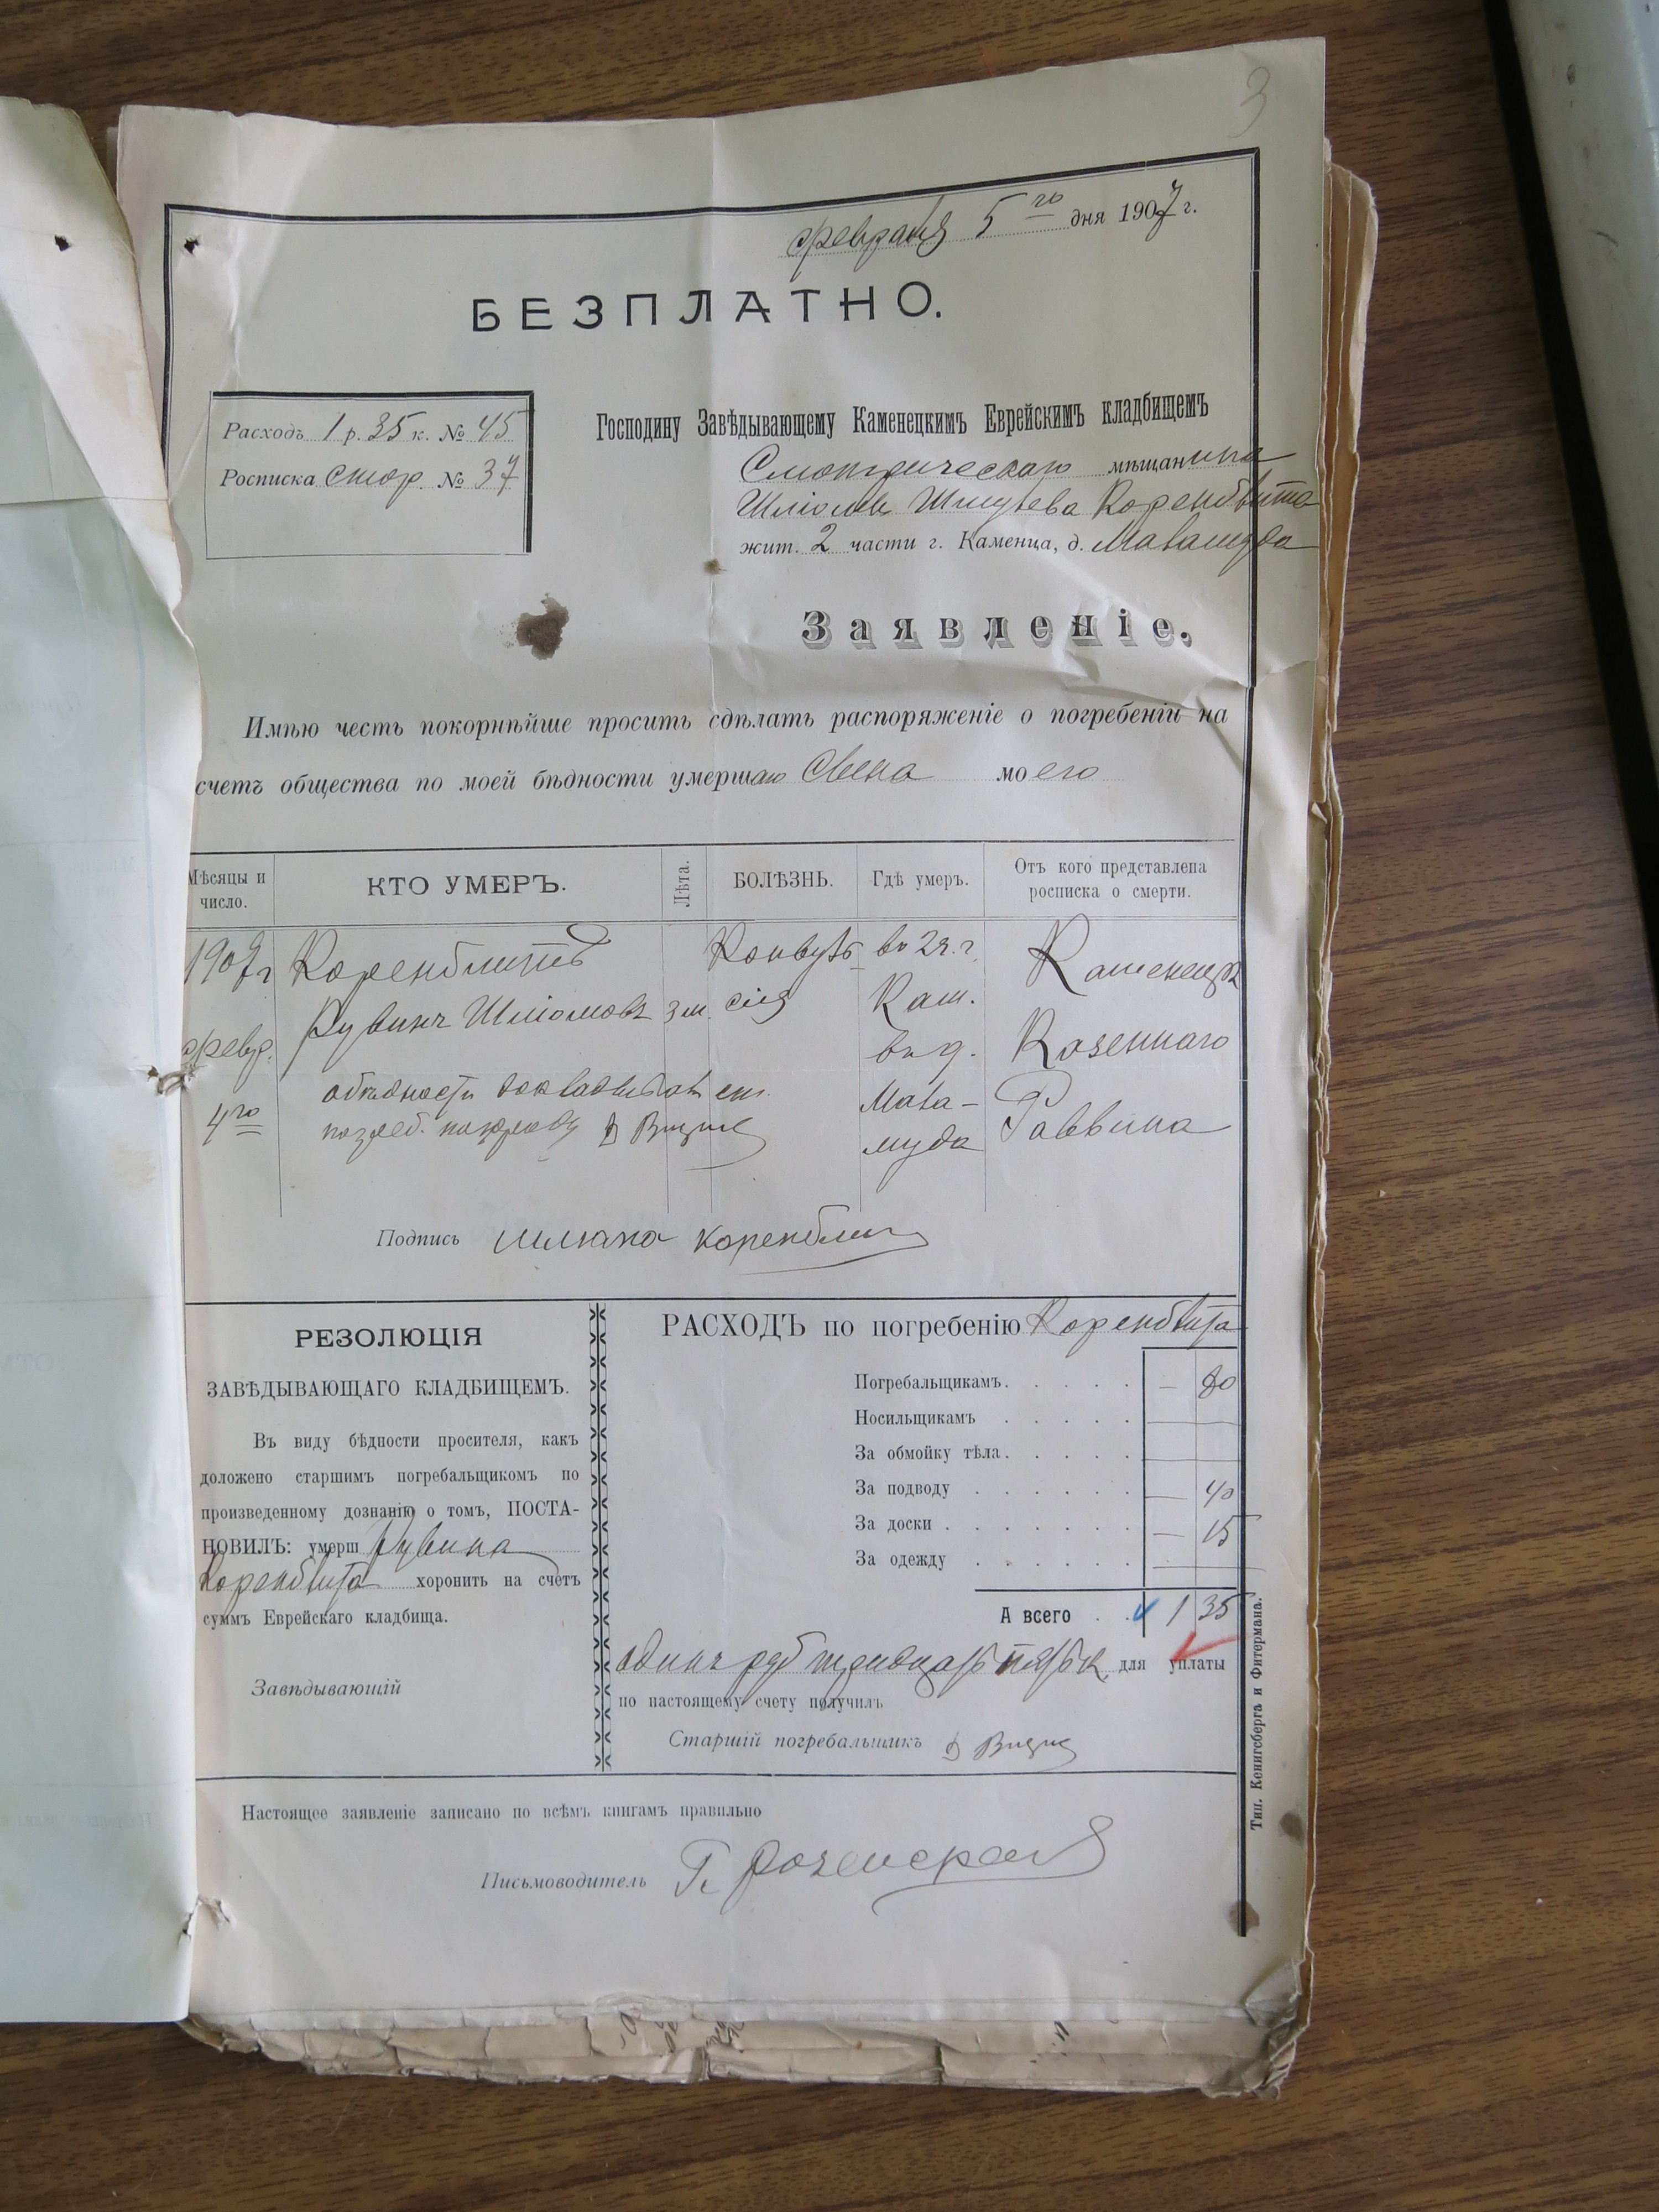 3
февраля 5го дня 1907 г.
БЕЗПЛАТНО.
Расходъ 1 р. 35 к. № 45
Росписка стор. № 37
Господину Завѣдывающему Каменецкимъ Еврейскимъ кладбищемъ
Смотрическаго мѣщанина
Шліомы Шмулева Коренблита
жит. 2 части г. Каменца, д.
Заявленіе.
Имѣю честь покорнѣйше просить сдѣлать распоряженіе о погребеніи на
счетъ общества по моей бѣдности умершаго сына моего
Мѣсяцы и число. КТО УМЕРЪ. Лѣта. БОЛѢЗНЬ. Гдѣ умеръ. Отъ кого представлена росписка о смерти.
1907 г Коренблитъ Конвуль во 2 ч. г. Каменецк
Рувинъ Шліомовъ 3 м. сія Кам.
февр. въ д. Казеннаго
4го Раввина
Подпись Шлиома Коренблит
РЕЗОЛЮЦІЯ
ЗАВѢДЫВАЮЩАГО КЛАДБИЩЕМЪ.
Въ виду бѣдности просителя, какъ
доложено старшимъ погребальщикомъ по
произведенному дознанію о томъ, ПОСТА-
НОВИЛЪ: умерш Рувина
Коренблита хоронить на счетъ
суммъ Еврейскаго кладбища.
Завѣдывающій
РАСХОДЪ по погребенію Коренблита
Погребальщикамъ. — 80
Носильщикамъ
За обмойку тѣла.
За подводу — 40
За доски — 15
За одежду
А всего 1 35
одинъ руб тридцать пять к. для уплаты
по настоящему счету получилъ
Старшій погребальщикъ
Настоящее заявленіе записано по всѣмъ книгамъ правильно
Письмоводитель
Тип. Кенигсберга и Фитермана.